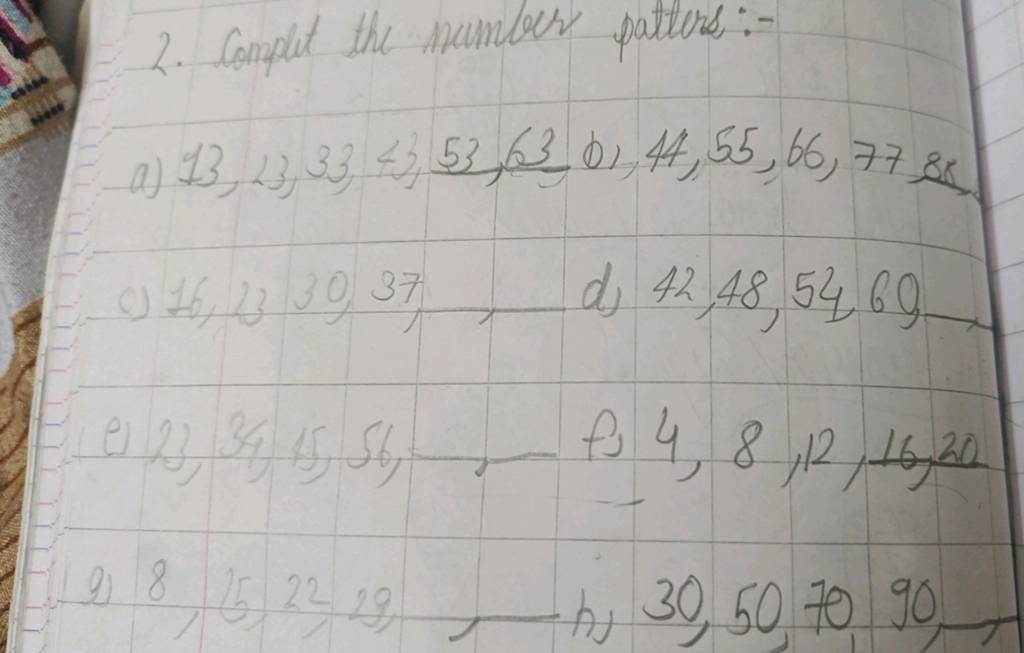 2. Complet the number patters :-
a) 13, 23, 33, 43, 53, 63 b), 44, 55, 66, 77, 88,
c) 16, 23 30, 37, __, __ d), 42, 48, 54, 60, __,
e) 23, 34, 45, 56, __, __ f), 4, 8, 12, 16, 20
g) 8, 15, 22, 29, __, __ h), 30, 50, 70, 90, __,